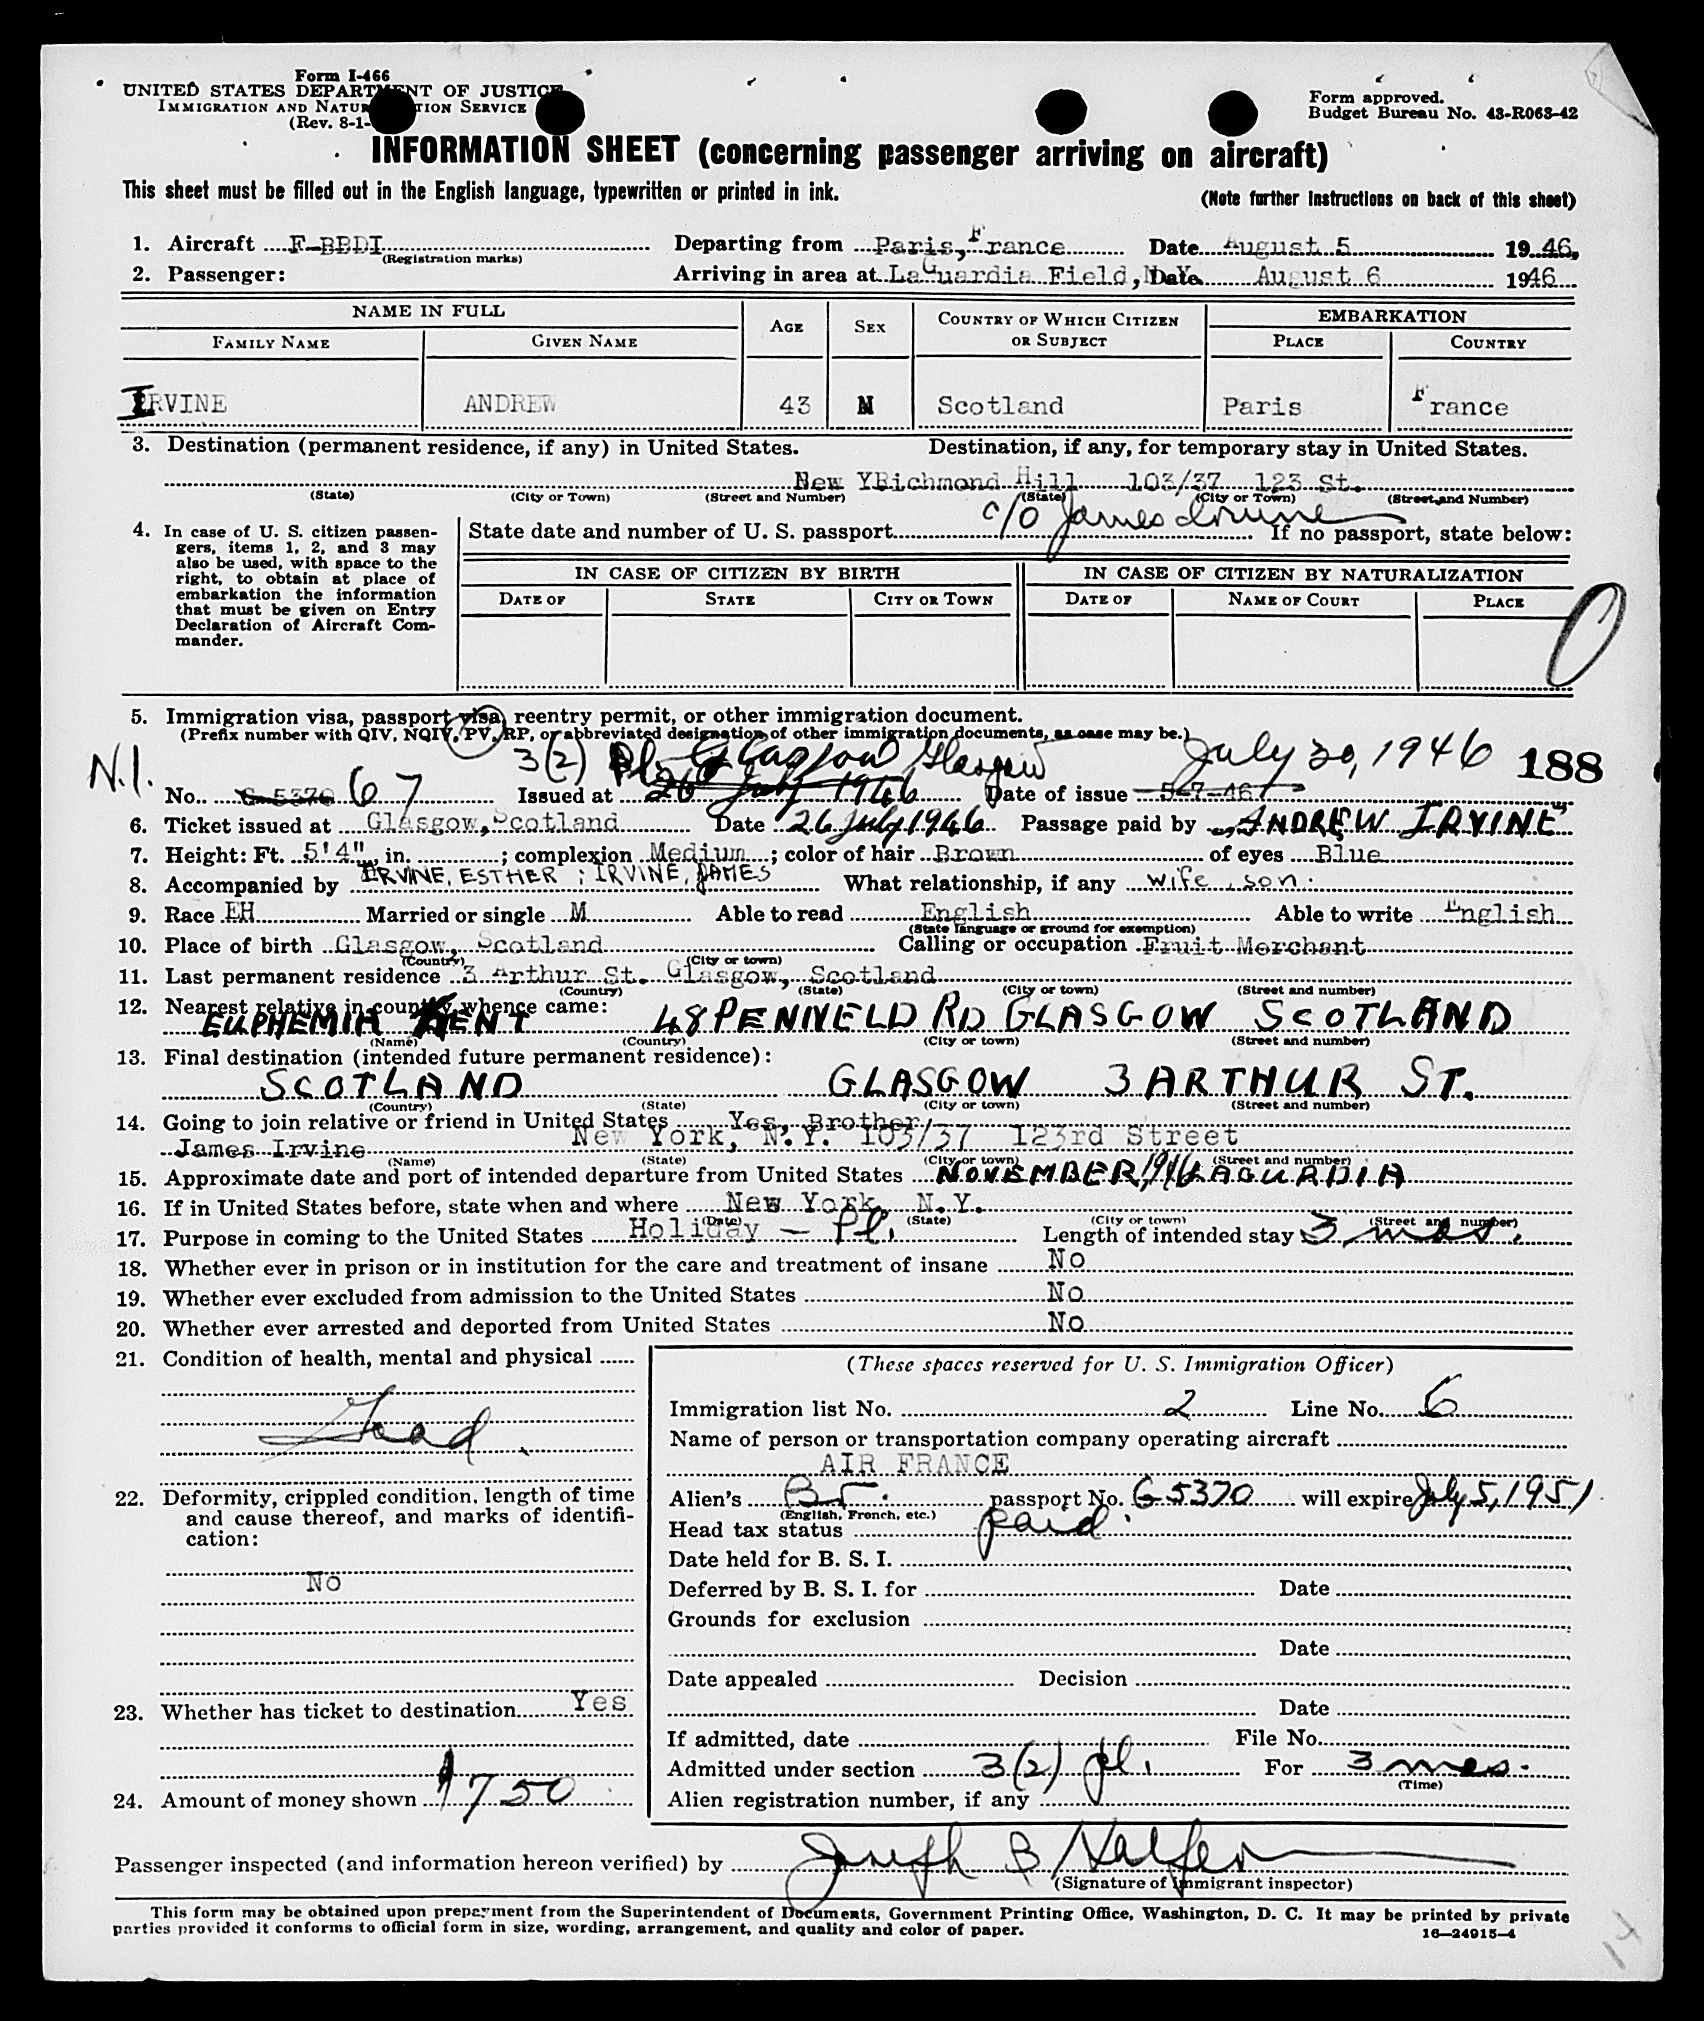 Form I-466
UNITED STATES DEPARTMENT OF JUSTICE
IMMIGRATION AND NATURALIZATION SERVICE
(Rev. 8-1-
Form approved.
Budget Bureau No. 43-R063-42
INFORMATION SHEET (concerning passenger arriving on aircraft)
This sheet must be filled out in the English language, typewritten or printed in ink.
(Note further instructions on back of this sheet)
1. Aircraft F-BBDI Departing from Paris, France Date August 5 1946,
(Registration marks)
2. Passenger: Arriving in area at LaGuardia Field, N.Y. Date August 6 1946
NAME IN FULL AGE SEX COUNTRY OF WHICH CITIZEN OR SUBJECT EMBARKATION
FAMILY NAME GIVEN NAME PLACE COUNTRY
IRVINE ANDREW 43 M Scotland Paris France
3. Destination (permanent residence, if any) in United States. Destination, if any, for temporary stay in United States.
New Y Richmond Hill 103/37 123 St.
(State) (City or Town) (Street and Number) (State) (City or Town) (Street and Number)
c/o James Irvine
4. In case of U. S. citizen passengers, items 1, 2, and 3 may also be used, with space to the right, to obtain at place of embarkation the information that must be given on Entry Declaration of Aircraft Commander.
State date and number of U. S. passport If no passport, state below:
IN CASE OF CITIZEN BY BIRTH IN CASE OF CITIZEN BY NATURALIZATION
DATE OF STATE CITY OR TOWN DATE OF NAME OF COURT PLACE
0
5. Immigration visa, passport visa, reentry permit, or other immigration document.
(Prefix number with QIV, NQIV, PV, RP, or abbreviated designation of other immigration documents, as case may be.)
N.I. 3(2) Pl. Glasgow Glasgow July 30, 1946 188
No. G 5370 67 Issued at 26 July 1946 Date of issue 5-7-46
6. Ticket issued at Glasgow, Scotland Date 26 July 1946 Passage paid by ANDREW IRVINE
7. Height: Ft. 5'4", in. ; complexion Medium ; color of hair Brown of eyes Blue
8. Accompanied by IRVINE, ESTHER ; IRVINE, JAMES What relationship, if any wife, son.
9. Race EH Married or single M Able to read English Able to write English
(State language or ground for exemption)
10. Place of birth Glasgow, Scotland Calling or occupation Fruit Merchant
(Country) (City or town)
11. Last permanent residence 3 Arthur St. Glasgow, Scotland
(Country) (State) (City or town) (Street and number)
12. Nearest relative in country whence came:
EUPHEMIA KENT 48 PENNELD RD GLASGOW SCOTLAND
(Name) (Country) (City or town) (Street and number)
13. Final destination (intended future permanent residence):
SCOTLAND GLASGOW 3 ARTHUR ST.
(Country) (State) (City or town) (Street and number)
14. Going to join relative or friend in United States Yes, Brother
James Irvine New York, N.Y. 103/37 123rd Street
(Name) (State) (City or town) (Street and number)
15. Approximate date and port of intended departure from United States NOVEMBER, 1946 LAGUARDIA
16. If in United States before, state when and where New York, N.Y.
(Date) (State) (City or town) (Street and number)
17. Purpose in coming to the United States Holiday — Pl. Length of intended stay 3 mos.
18. Whether ever in prison or in institution for the care and treatment of insane No
19. Whether ever excluded from admission to the United States No
20. Whether ever arrested and deported from United States No
21. Condition of health, mental and physical
Good.
22. Deformity, crippled condition, length of time and cause thereof, and marks of identification:
No
23. Whether has ticket to destination Yes
24. Amount of money shown $750
(These spaces reserved for U. S. Immigration Officer)
Immigration list No. 2 Line No. 6
Name of person or transportation company operating aircraft
AIR FRANCE
Alien's Br. passport No. G 5370 will expire July 5, 1951
(English, French, etc.)
Head tax status paid.
Date held for B. S. I.
Deferred by B. S. I. for Date
Grounds for exclusion
Date
Date appealed Decision
Date
If admitted, date File No.
Admitted under section 3(2) pl. For 3 mos.
(Time)
Alien registration number, if any
Passenger inspected (and information hereon verified) by Joseph B
(Signature of immigrant inspector)
This form may be obtained upon prepayment from the Superintendent of Documents, Government Printing Office, Washington, D. C. It may be printed by private
parties provided it conforms to official form in size, wording, arrangement, and quality and color of paper.
16—24915-4
14